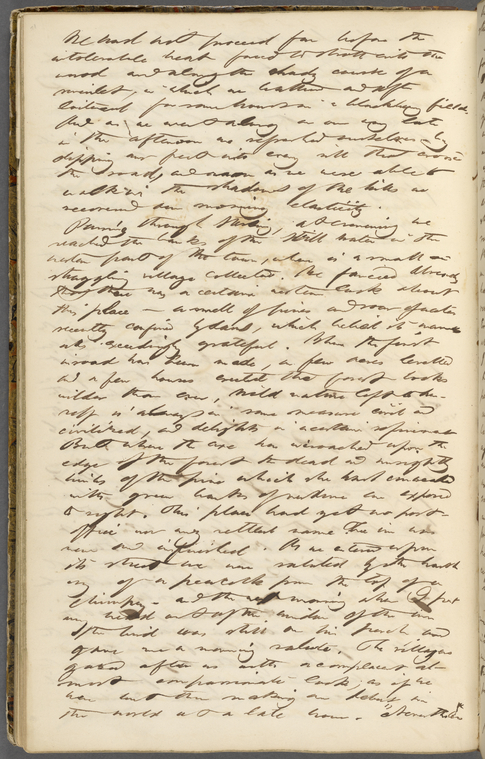 We had not proceed far before the
intolerable heat forced to strole into the
wood and along the shady course of a
rivulet, in which we bathed and
loitered for some hours in a blackberry field.
And as we went along on our way late
in the afternoon we refreshed ourselves by
dipping our feet into every rill that crossed
the road, and anon as we were able to
walk in the shadows of the hills we
recovered our morning elasticity.
Passing through Sterling, at evening we
reached the banks of the Still water in the
western part of the town, where is a small
straggling village collected. We fancied already
that there was a certain western look about
this place — a smell of pines and roar of water
recently confined by dams, which belied its name
were exceedingly grateful. When the first
inroad has been made, a few acres levelled
and a few houses erected the forest looks
wilder than ever, Wild nature left to her-
self is always in some measure civil and
civilized, and delights in a certain refinement
But where the axe has encroached upon the
edge of the forest the dead and unsightly
limbs of the pine which she had concealed
with green banks of verdure are exposed
to sight. This place had yet no post
office nor any settled name The inn was
new and unfinished. As we entered upon
its street we were saluted by the harsh
cry of a peacock from the top of a
chimney — and the next morning when I put
my head out of the window of the inn
the bird was still on his perch and
gave me a morning salute. The villagers
gazed after us with a complacent al-
most compassionate look, as if we
were but then making our debut in
the world at a late hour. Nevertheless